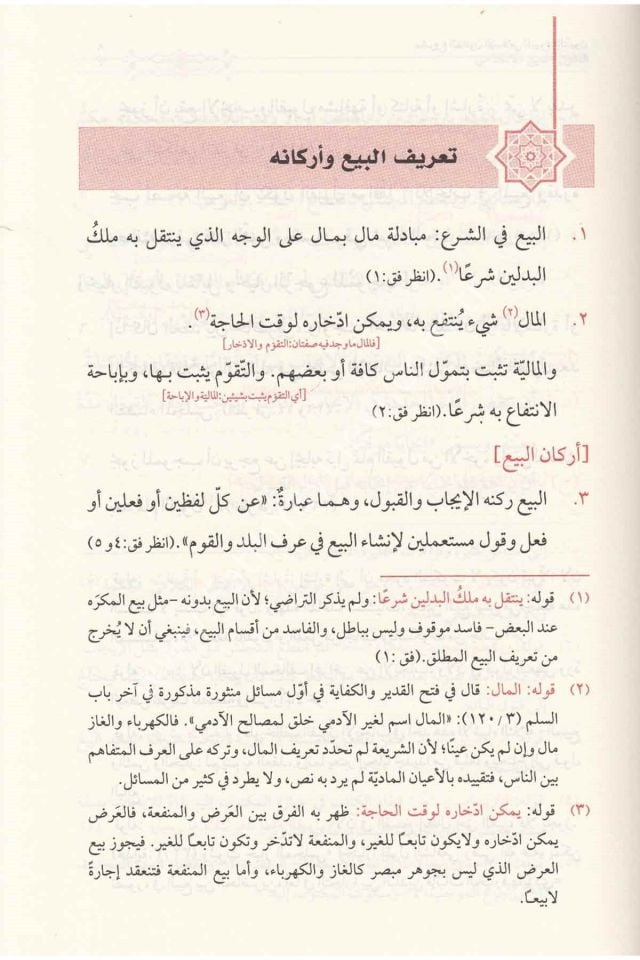 تعريف البيع وأركانه
١. البيع في الشرع: مبادلة مال بمال على الوجه الذي ينتقل به ملكُ
البدلين شرعًا(١).(انظر فق:١)
٢. المال(٢) شيء يُنتفع به، ويمكن ادّخاره لوقت الحاجة(٣).
[فالمال ما وجد فيه صفتان: التقوّم والادّخار]
والماليّة تثبت بتموّل الناس كافة أو بعضهم. والتّقوّم يثبت بها، وبإباحة
[أي التقوّم يثبت بشيئين: المالية والإباحة]
الانتفاع به شرعًا.(انظر فق:٢)
[أركان البيع]
٣. البيع ركنه الإيجاب والقبول، وهما عبارةٌ: «عن كلّ لفظين أو فعلين أو
فعل وقول مستعملين لإنشاء البيع في عرف البلد والقوم».(انظر فق:٤ و ٥)
(١) قوله: ينتقل به ملكُ البدلين شرعًا: ولم يذكر التراضي؛ لأن البيع بدونه –مثل بيع المكرَه
عند البعض– فاسد موقوف وليس بباطل، والفاسد من أقسام البيع، فينبغي أن لا يُخرج
من تعريف البيع المطلق.(فق:١)
(٢) قوله: المال: قال في فتح القدير والكفاية في أوّل مسائل منثورة مذكورة في آخر باب
السلم (١٢٠/٣): «المال اسم لغير الآدمي خلق لمصالح الآدمي». فالكهرباء والغاز
مال وإن لم يكن عينًا؛ لأن الشريعة لم تحدّد تعريف المال، وتركه على العرف المتفاهم
بين الناس، فتقييده بالأعيان الماديّة لم يرد به نص، ولا يطرد في كثير من المسائل.
(٣) قوله: يمكن ادّخاره لوقت الحاجة: ظهر به الفرق بين العَرض والمنفعة، فالعَرض
يمكن ادّخاره ولايكون تابعًا للغير، والمنفعة لاتدّخر وتكون تابعًا للغير. فيجوز بيع
العرض الذي ليس بجوهر مبصر كالغاز والكهرباء، وأما بيع المنفعة فتنعقد إجارةً
لابيعًا.